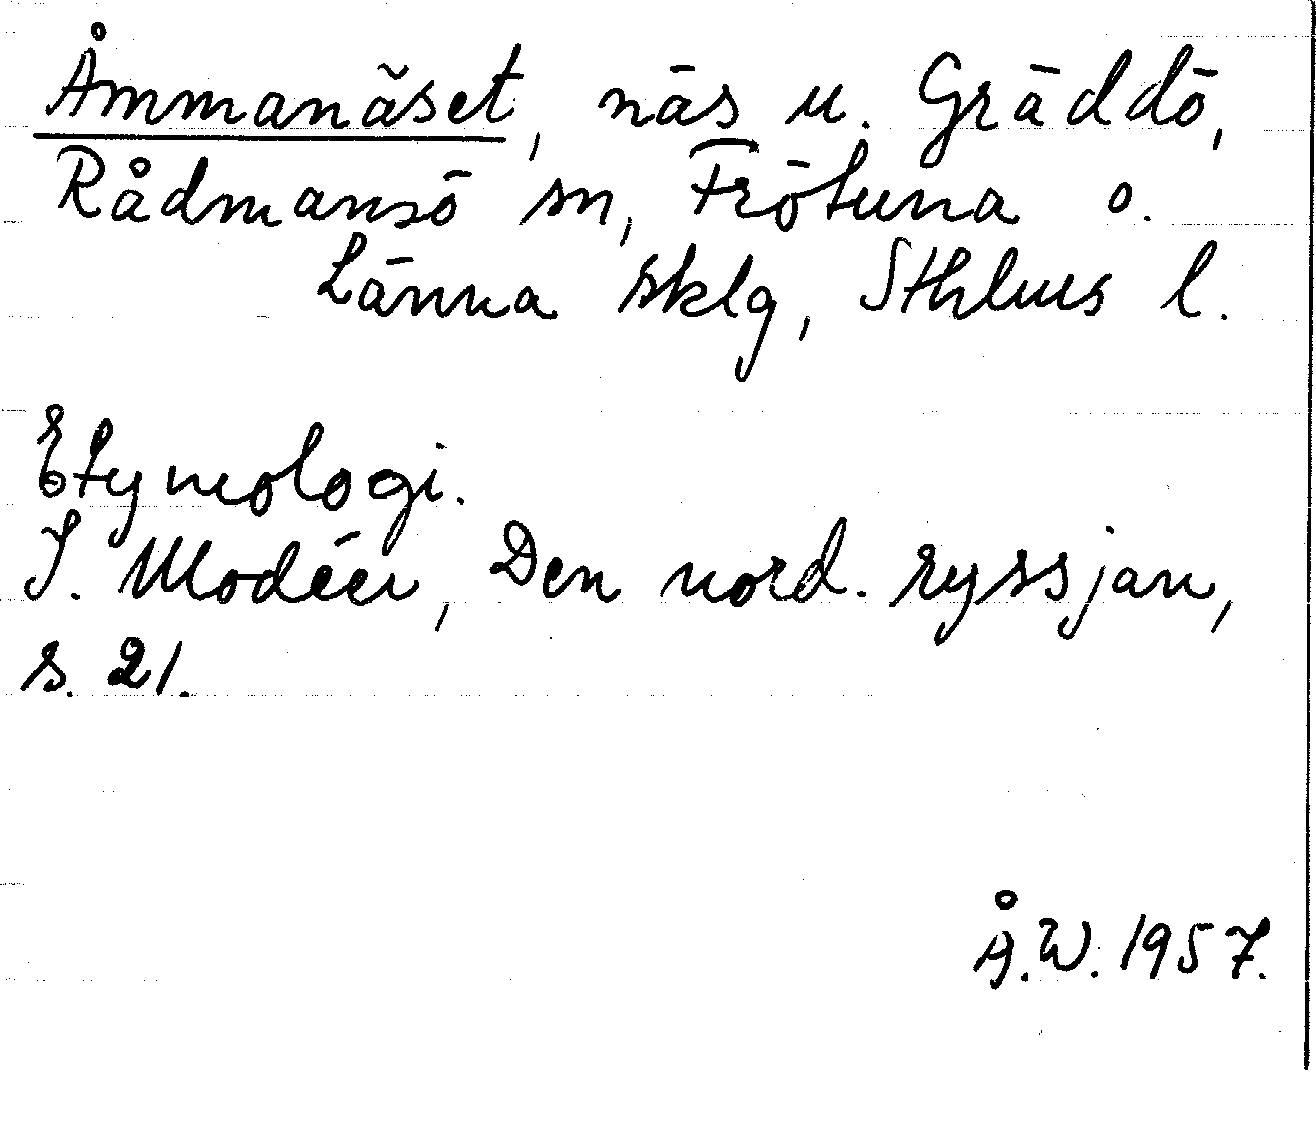 Åmmanäset, näs u. Gräddö,
Rådmansö sn, Frötuna o.
Länna sklg, Sthlms l.
Etymologi.
I. Modéer, Den nord. ryssjan,
s. 21.
Å.W. 1957.